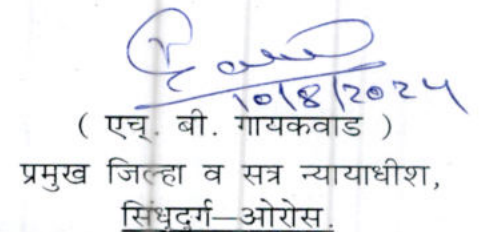 10/8/2024
( एच्. बी. गायकवाड )
प्रमुख जिल्हा व सत्र न्यायाधीश,
सिंधुदुर्ग–ओरोस.